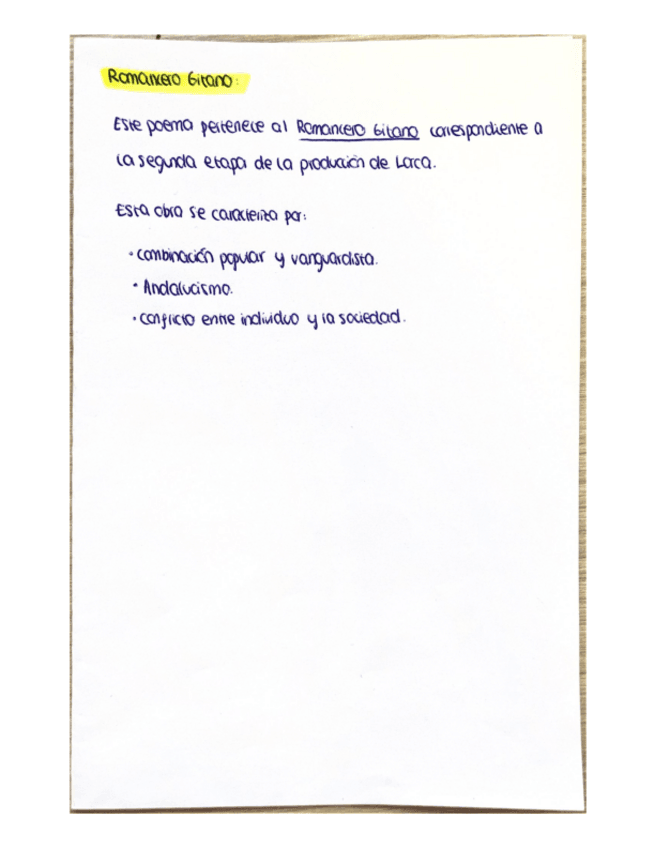 Romancero Gitano:
Este poema pertenece al Romancero Gitano correspondiente a
la segunda etapa de la producción de Lorca.
Esta obra se caracteriza por:
· combinación popular y vanguardista.
· Andalucismo.
· conflicto entre individuo y la sociedad.